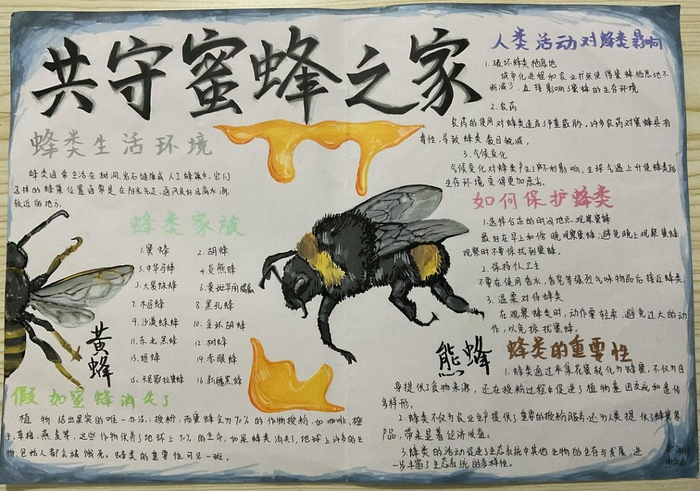 共守蜜蜂之家
蜂类生活环境
蜂类通常生活在树洞、岩石缝隙或人工蜂巢里,它们
选择的蜂巢位置通常是在阳光充足、通风良好且离水源
较近的地方。
蜂类家族
1.黄蜂
2.胡蜂
3.中华马蜂
4.炎熊蜂
5.大黑蛛蜂
7.木匠蜂
8.黑孔蜂
9.沙漠蛛蜂
10.金环胡蜂
11.东北黑蜂
12.树蜂
13.姬蜂
14.杏眼蜂
15.卡尼鄂拉黑蜂
16.新疆黑蜂
黄蜂
假如蜜蜂消失了
植物结出果实的唯一办法:授粉,而蜜蜂会为70%的作物授粉,如咖啡、橙
人类活动对蜂类影响
1.破坏蜂类栖息地
城市化进程和农业扩张使得蜜蜂栖息地不
断减少,直接影响了蜜蜂的生存环境
2.农药
农药的使用对蜂类造成了严重威胁,许多农药对蜜蜂具有
毒性,导致蜂类数目锐减。
3.气候变化
气候变化对蜂类产生了不利影响,全球气温上升使蜂类的
生存环境变得更加恶劣。
如何保护蜂类
1.选择合适的时间地点观察蜜蜂
最好在早上和傍晚观察蜜蜂,避免晚上观察蜜蜂
观察时不要惊扰到蜜蜂。
2.保持个人卫生
不要在使用香水、香皂等强烈气味物品后接近蜂类
3.温柔对待蜂类
在观察蜂类时,动作要轻柔,避免过大的动
作,以免惊扰蜜蜂。
熊蜂
蜂类的重要性
1.蜂类通过采集花蜜转化为蜂蜜,不仅为自
身提供了食物来源,还在授粉过程中促进了植物基因交流和遗传
多样性。
2.蜂类不仅为农业生产提供了重要的授粉服务,还为人类提供了蜂蜜等
产品,带来显著经济收益。
3.蜂类的活动促进了生态系统中其他生物的生存与发展,进
一步丰富了生态系统的多样性。